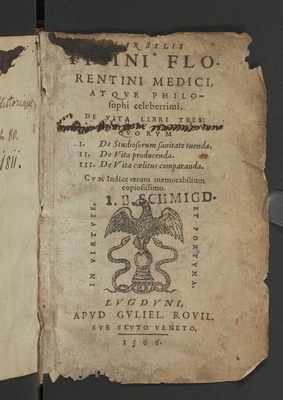 Historique
80.
1811.
MARSILII
FICINI FLO-
RENTINI MEDICI,
ATQVE PHILO-
sophi celeberrimi,
DE VITA LIBRI TRES:
QVORVM
I. De Studiosorum sanitate tuenda.
II. De Vita producenda.
III. De Vita cœlitus comparanda.
CVM Indice rerum memorabilium
copiosissimo.
I. P. SCHMIGD.
IN VIRTVTE,
ET FORTVNA,
LVGDVNI,
APVD GVLIEL. ROVIL.
SVB SCVTO VENETO,
1566.